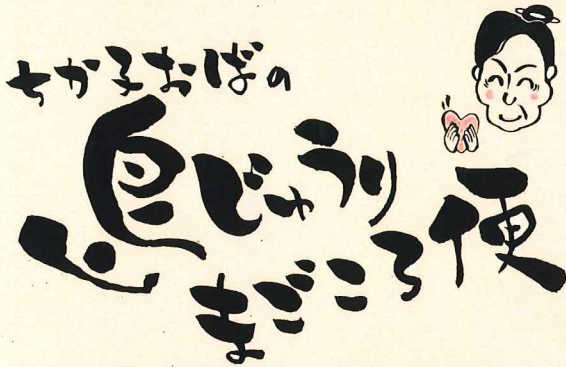 ちか子おばの
息じゅうり
まごころ便